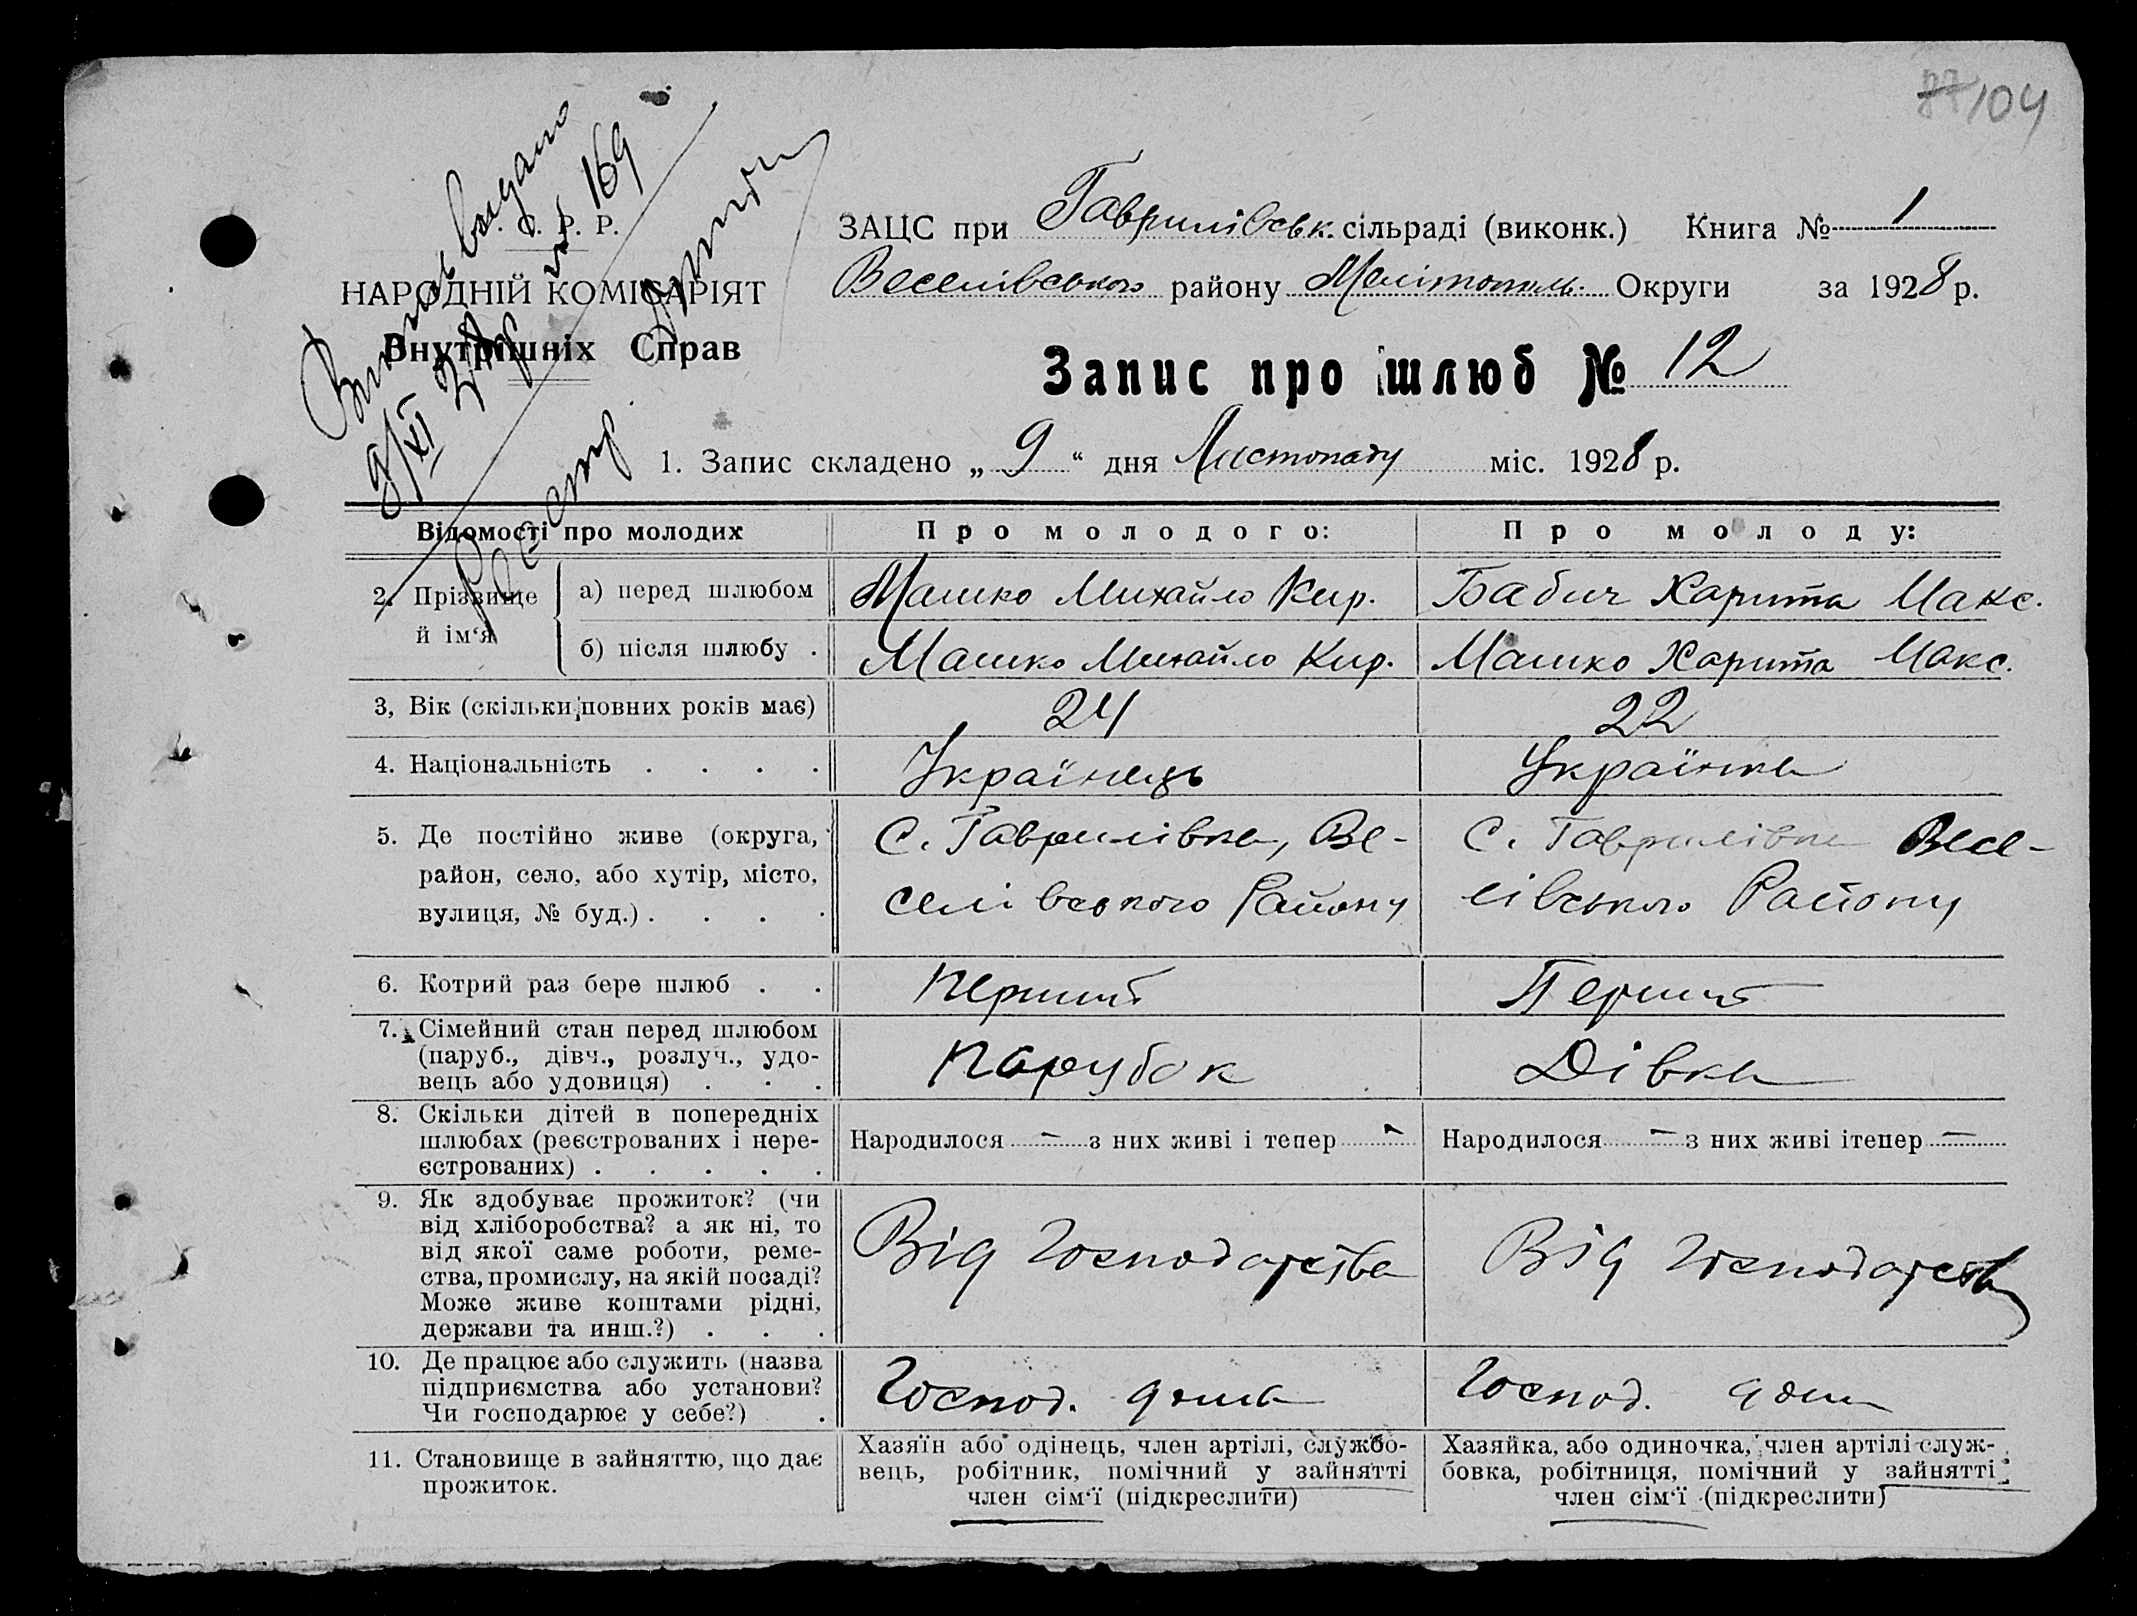 87 104
Виписъ видано
9/XI 28 р. № 169
Реєстр.
. С. Р. Р.
НАРОДНІЙ КОМІСАРІЯТ
Внутрішніх Справ
ЗАЦС при Гаврилівськ. сільраді (виконк.) Книга № 1
Веселівського району Мелітополь. Округи за 1928 р.
Запис про шлюб № 12
1. Запис складено „ 9 “ дня Листопаду міс. 1928 р.
Відомості про молодих Про молодого: Про молоду:
2. Прізвище й ім‘я
а) перед шлюбом Машко Михайло Кир. Бабич Харита Макс.
б) після шлюбу . Машко Михайло Кир. Машко Харита Макс.
3, Вік (скільки повних років має) 24 22
4. Національність . . . . Українець Українка
5. Де постійно живе (округа,
район, село, або хутір, місто,
вулиця, № буд.) . . . .
С. Гаврилівка, Ве-
селівського Району
С. Гаврилівка Весе-
лівського Району
6. Котрий раз бере шлюб . . Перший Перший
7. Сімейний стан перед шлюбом
(паруб., дівч., розлуч., удо-
вець або удовиця) . . .
Парубок Дівка
8. Скільки дітей в попередніх
шлюбах (реєстрованих і нере-
єстрованих) . . . . .
Народилося — з них живі і тепер — Народилося — з них живі ітепер —
9. Як здобуває прожиток? (чи
від хліборобства? а як ні, то
від якої саме роботи, реме-
ства, промислу, на якій посаді?
Може живе коштами рідні,
держави та инш.?) . . .
Від господарства Від господарства
10. Де працює або служить (назва
підприємства або установи?
Чи господарює у себе?) .
Господ. дома Господ. дома
11. Становище в зайняттю, що дає
прожиток.
Хазяїн або одінець, член артілі, службо-
вець, робітник, помічний у зайнятті
член сім‘ї (підкреслити)
Хазяйка, або одиночка, член артілі служ-
бовка, робітниця, помічний у зайнятті
член сім‘ї (підкреслити)